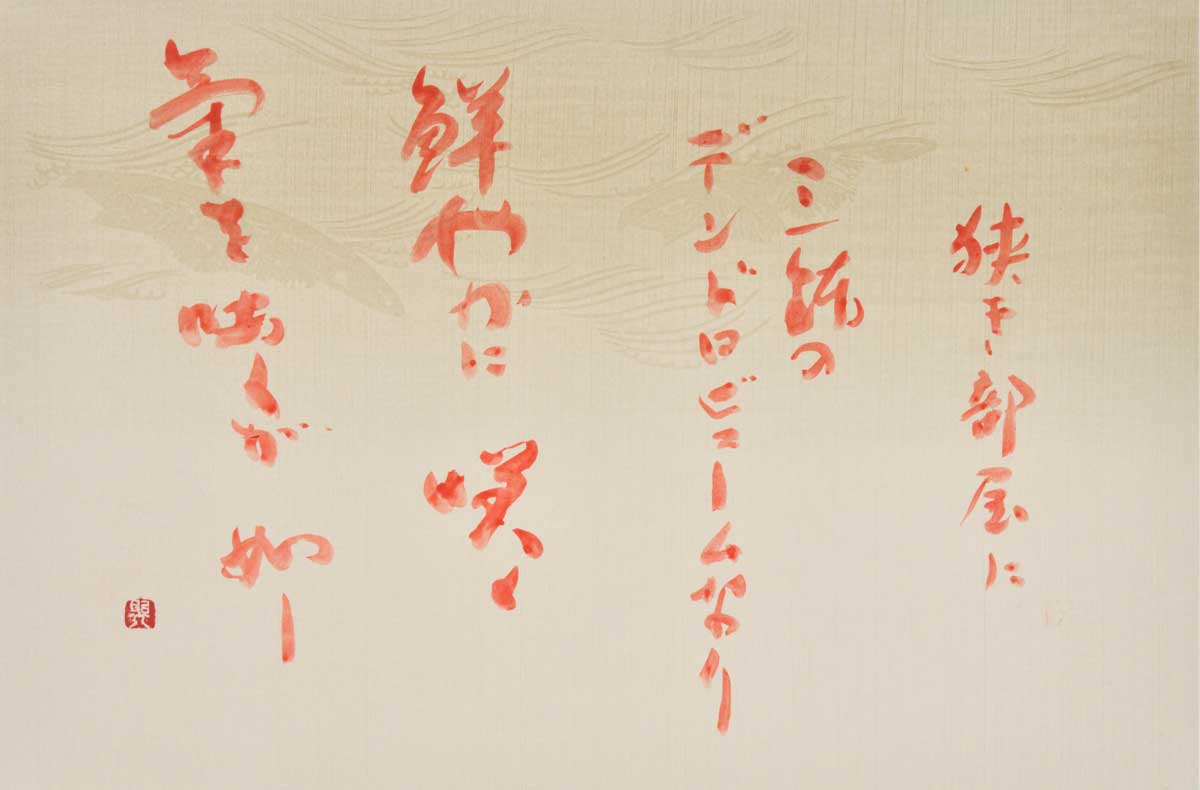 狭き部屋に
三鉢の
デンドロビュームなり
鮮やかに 咲く
氣を吐くが 如し